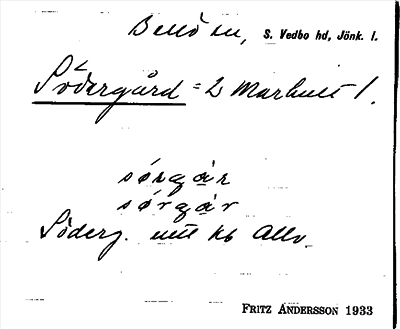 Bellö sn, S. Vedbo hd, Jönk. l.
Södergård = 2 Marhult 1.
sørgår
sørgår
Söderg. enl kb Allv.
FRITZ ANDERSSON 1933